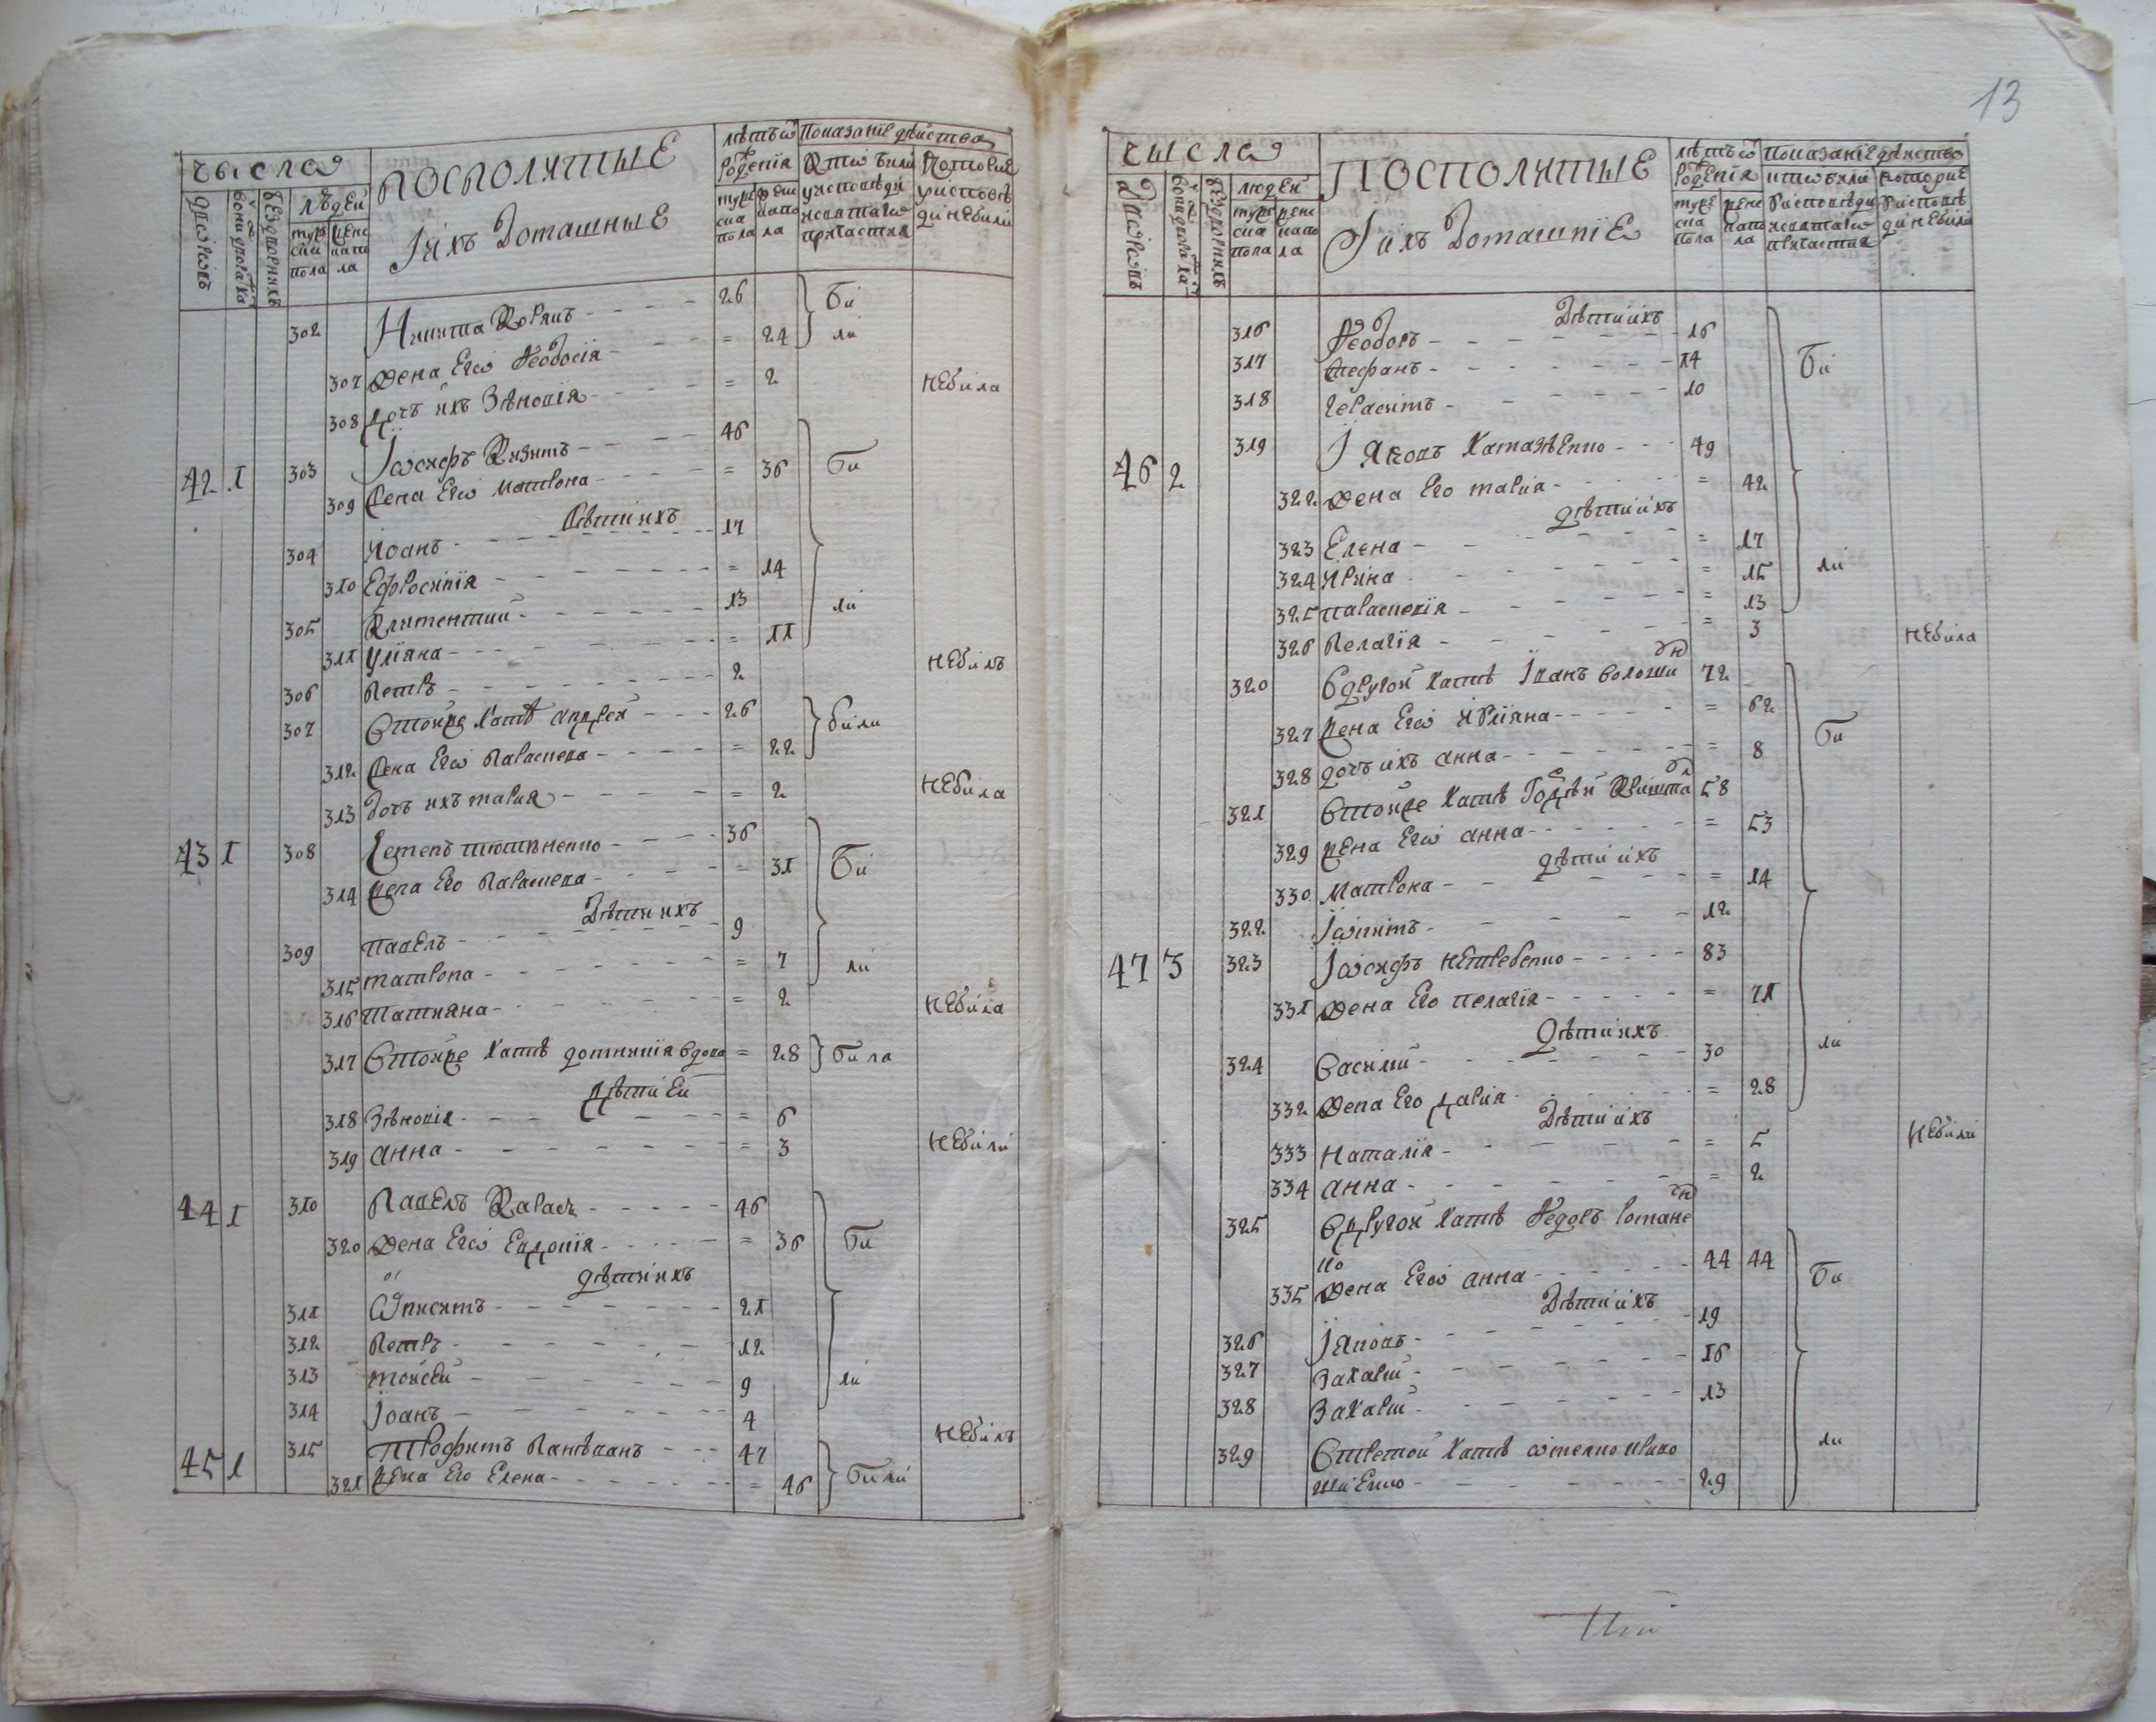 числа
дворовъ
вони дворахъ хатъ
бездворнихъ
людей
мужеска пола
женска пола
ПОСПОЛИТЫЕ
Іихъ Домашные
лѣтъ ѿ рожденія
мужеска пола
женска пола
Показаніе дѣйства
Кто били у исповѣди и святаго причастия
Которие у исповѣди небили
302 Никита Коваль - - - 26 Би
307 Жена Его Ѳеодосія - - = 24 ли
308 дочь ихъ Зѣновія - - - = 2 небила
42 1 303 Іѡсифъ Кизимъ - - - 46 Би
309 Жена Его матрона - - - = 36
Дѣти ихъ
304 Иоанъ - - - 17
310 Ефросинія - - - = 14
305 Климентий - - - 13 ли
311 Уліяна - - - = 11
306 Петръ - - - 2 небилъ
307 Втойже хатѣ андрей - - - 26 били
312 Жена Его Параскева - - - = 22
313 дочь ихъ мария - - - = 2 небила
43 1 308 Семенъ - - - 36 Би
314 Жена Его Параскева - - - = 31
Дѣти ихъ
309 Павелъ - - - 9
315 матрона - - - = 7 ли
316 Татияна - - - = 2 небила
317 Втойже хатѣ домникія вдова = 28 била
Дѣти Ей
318 Зѣновія - - - = 6
319 анна - - - = 3 небили
44 1 310 Павелъ Карась - - - 46 Би
320 Жена Его Евдокія - - - = 36
дѣти ихъ
311 Ѻнисимъ - - - 21
312 Петръ - - - 12
313 моисей - - - 9 ли
314 Іоанъ - - - 4 небилъ
45 1 315 Трофимъ - - - 47 Били
321 Жена Его Елена - - - = 46
13
числа
дворовъ
бездворнихъ
людей
мужеска пола
женска пола
ПОСПОЛИТЫЕ
Іихъ Домашніе
лѣтъ ѿ рожденія
муже ска пола
женска пола
Показаніе дѣйства
кто били висповѣди исвятаго причастия
которие висповѣди небили
Дѣти ихъ
316 Ѳеодоръ - - - 16
317 Стефанъ - - - 14 Би
318 Герасимъ - - - 10
46 2 319 Іяковъ - - - 49
322 Жена Его мария - - - = 42
дѣти ихъ
323 Елена - - - = 17
324 Ирина - - - = 15 ли
325 параскевія - - - = 13
326 Пелагія - - - = 3 небила
320 Вдругой хатѣ Іванъ волошин 72
327 Жена Его Иріяна - - - = 62 Би
328 дочь ихъ анна - - - = 8
321 Втойже хатѣ 58
329 Жена Его анна - - - = 53
дѣти ихъ
330 матрона - - - = 14
322 Іѡкимъ - - - 12
47 3 323 Іѡсифъ нетребенко - - - 83
331 Жена Его пелагія - - - = 71
Дѣти ихъ
324 Василий - - - 30 ли
332 Жена Его дарія - - - = 28
Дѣти ихъ
333 Наталія - - - = 5 небили
334 анна - - - = 2
325 Вдругой хатѣ Ѳедоръ романе
нко 44
335 Жена Его анна - - - 44 Би
Дѣти ихъ
326 Іяковъ - - - 19
327 Захарій - - - 16
328 Захарій - - - 13
329 Втретой хатѣ ли
шиенко - - - 29